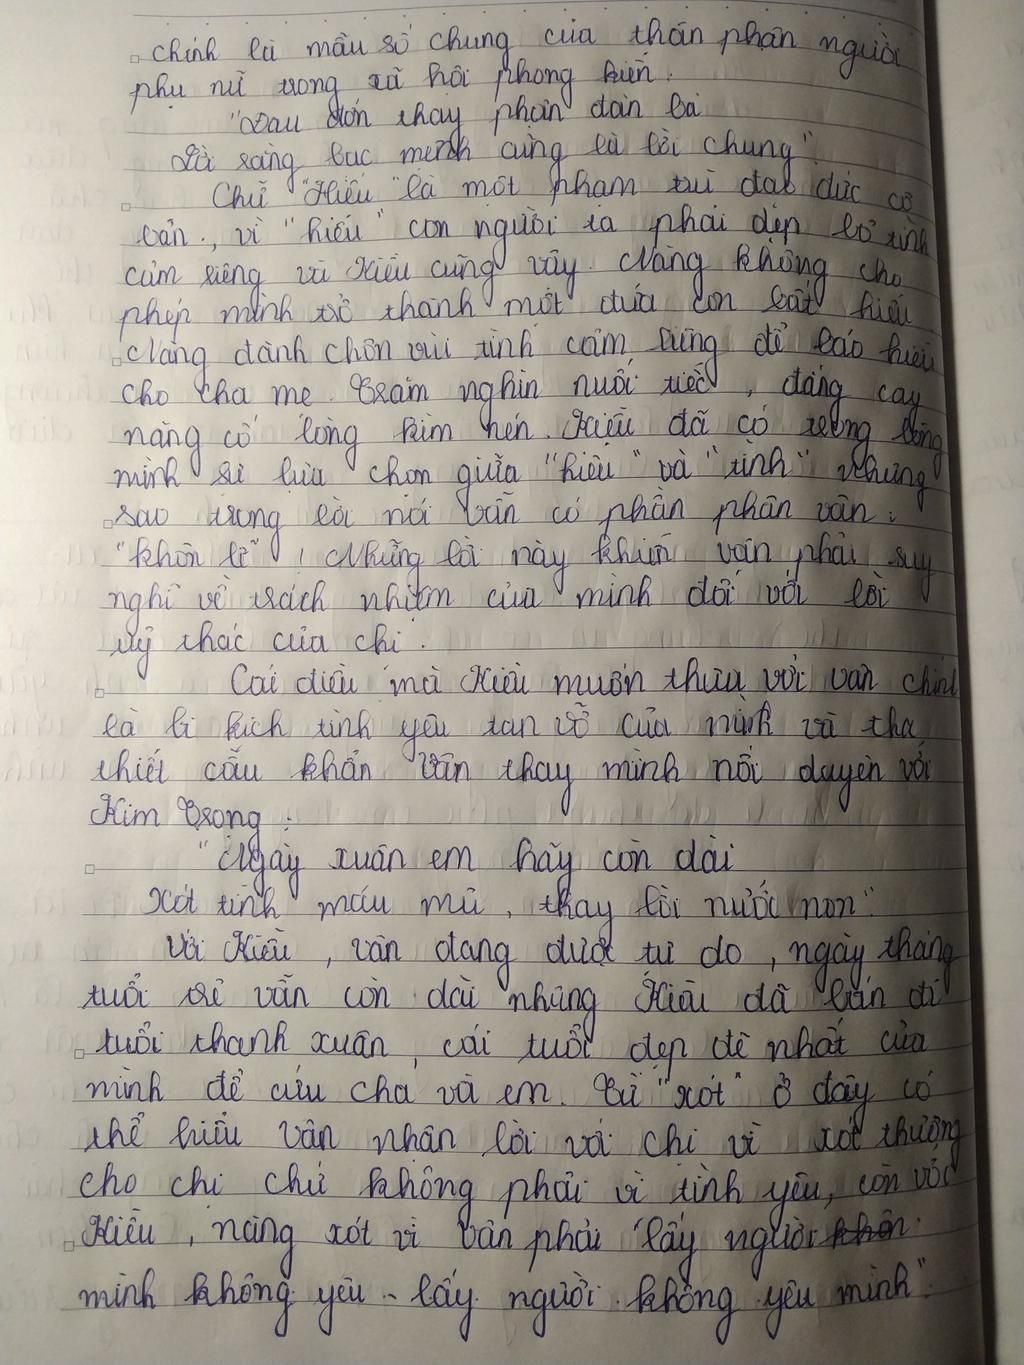 chính là mẫu số chung của thân phận người
phụ nữ trong xã hội phong kiến.
"Đau đớn thay phận đàn bà
Lời rằng bạc mệnh cũng là lời chung".
Chữ "Hiếu" là một phạm trù đạo đức cơ
bản, vì "hiếu" con người ta phải dẹp bỏ tình
cảm riêng và Kiều cũng vậy. Nàng không cho
phép mình trở thành một đứa con bất hiếu.
Nàng đành chôn vùi tình cảm riêng để báo hiếu
cho cha mẹ. Trăm nghìn nuối tiếc, đắng cay
nàng cố lòng kìm nén. Kiều đã có trong lòng
mình sự lựa chọn giữa "hiếu" và "tình" nhưng
sao trong lời nói vẫn có phần phân vân:
"khôn lẽ"! Những lời này khiến vân phải suy
nghĩ về trách nhiệm của mình đối với lời
uỷ thác của chị.
Cái điều mà Kiều muốn thưa với vân chính
là bi kịch tình yêu tan vỡ của mình và tha
thiết cầu khẩn Vân thay mình nối duyên với
Kim Trọng:
"Ngày xuân em hãy còn dài
Xót tình máu mủ, thay lời nước non".
Với Kiều, vân đang được tự do, ngày tháng
tuổi trẻ vẫn còn dài nhưng Kiều đã bán đi
tuổi thanh xuân, cái tuổi đẹp đẽ nhất của
mình để cứu cha và em. Từ "xót" ở đây có
thể hiểu Vân nhận lời với chị vì xót thương
cho chị chứ không phải vì tình yêu, còn với
Kiều, nàng xót vì vân phải "lấy người
mình không yêu - lấy người không yêu mình".